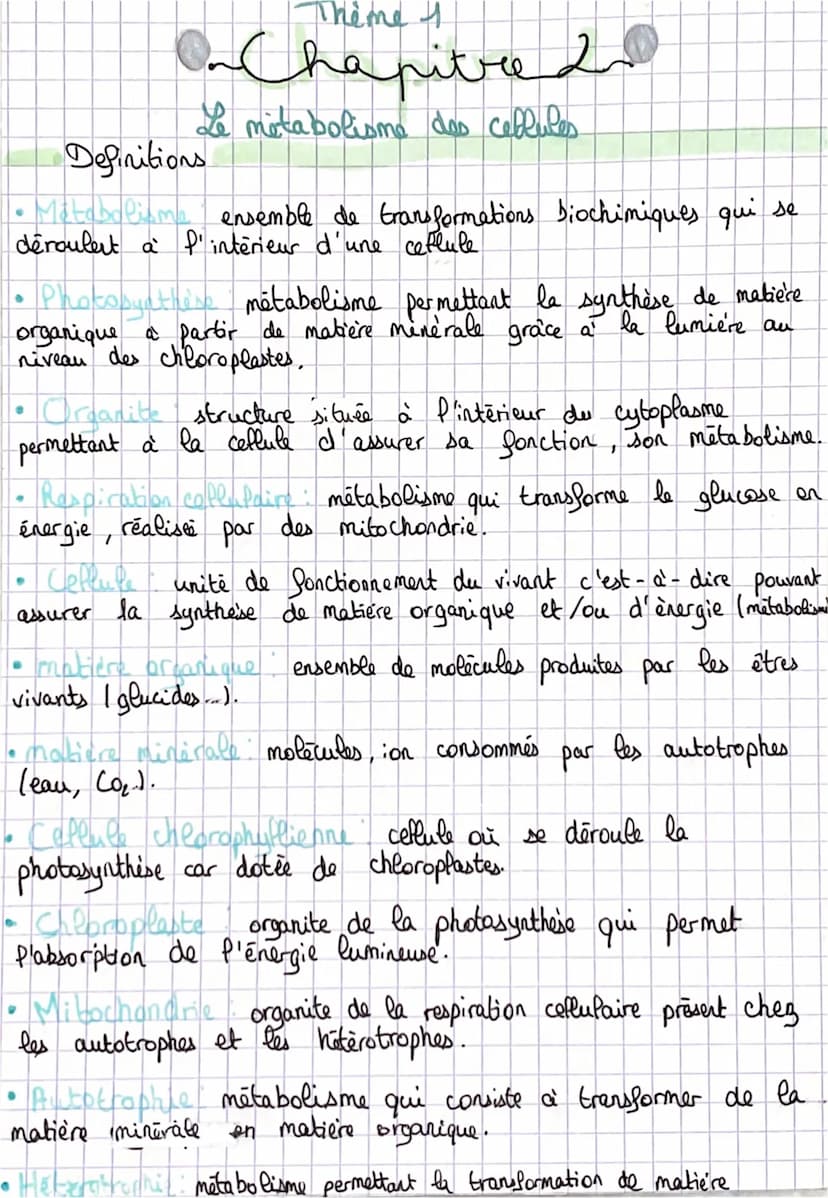 Thème 1
Chapitre 2
Le métabolisme des cellules
Definitions
• Métabolisme : ensemble de transformations biochimiques qui se
déroulent à l'intérieur d'une cellule
• Photosynthèse : métabolisme permettant la synthèse de matière
organique à partir de matière minérale grâce à la lumière au
niveau des chloroplastes.
• Organite : structure située à l'intérieur du cytoplasme
permettant à la cellule d'assurer sa fonction, son métabolisme.
• Respiration cellulaire : métabolisme qui transforme le glucose en
énergie, réalisée par des mitochondrie.
• Cellule : unité de fonctionnement du vivant c'est-à-dire pouvant
assurer la synthèse de matière organique et/ou d'énergie (métabolisme
• matière organique : ensemble de molécules produites par les êtres
vivants (glucides...).
• matière minérale : molécules, ion consommés par les autotrophes
(eau, CO2..).
• Cellule chlorophyllienne : cellule où se déroule la
photosynthèse car dotée de chloroplastes.
• Chloroplaste : organite de la photosynthèse qui permet
l'absorption de l'énergie lumineuse.
• Mitochondrie : organite de la respiration cellulaire présent chez
les autotrophes et les hétérotrophes.
• Autotrophie : métabolisme qui consiste à transformer de la
matière minérale en matière organique.
• Hétérotrophie : métabolisme permettant la transformation de matière